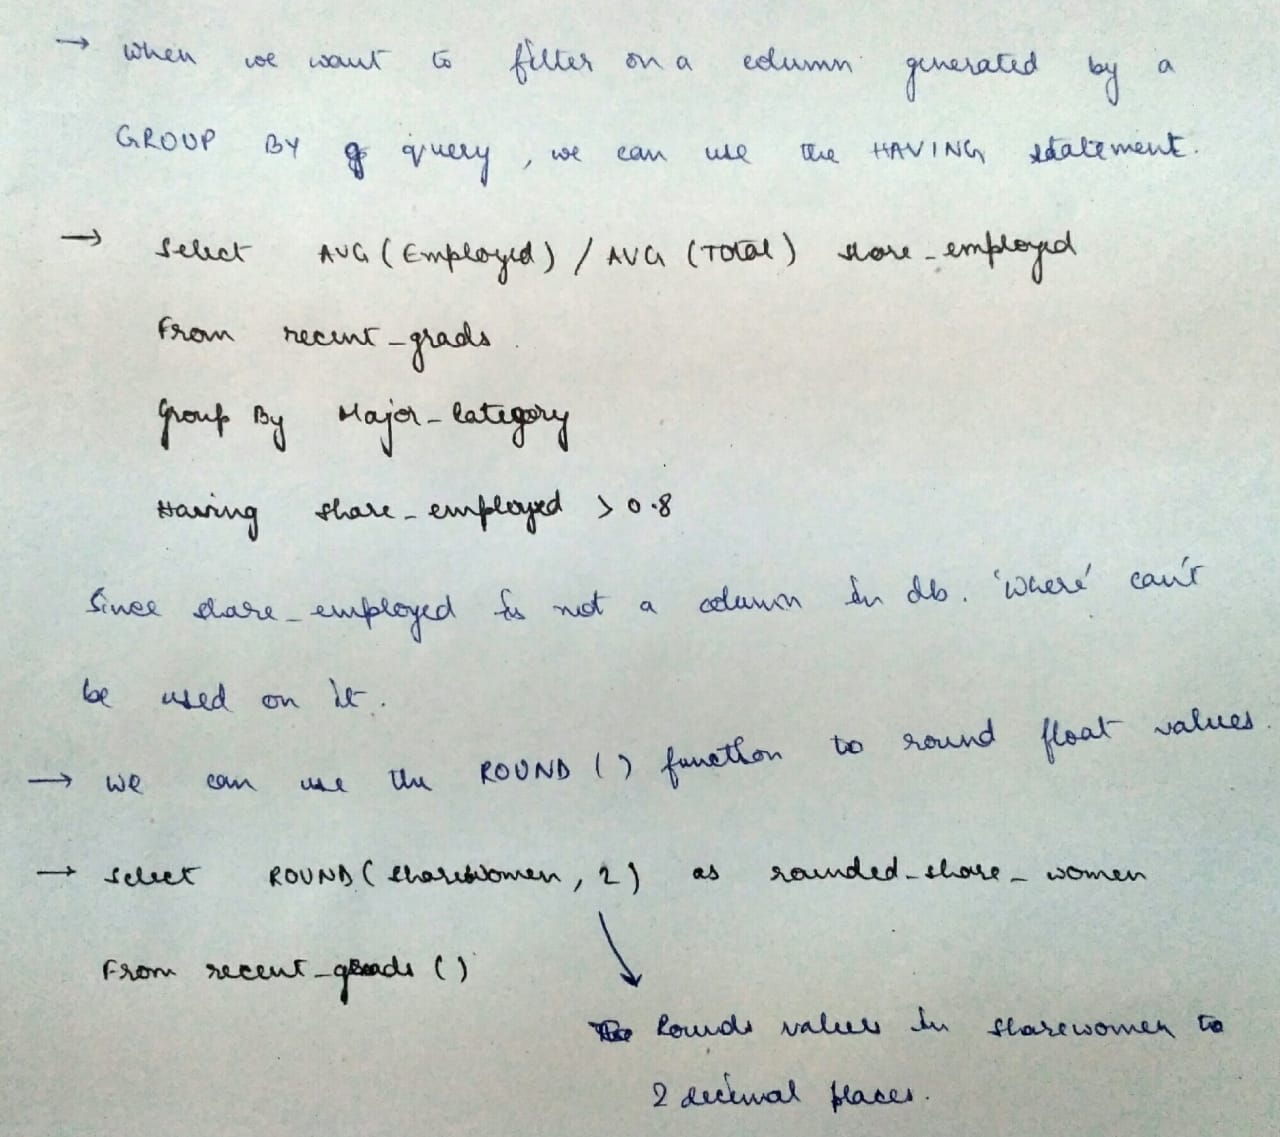 → when we want to filter on a column generated by a
GROUP BY query, we can use the HAVING statement.
→ Select AVG (Employed) / AVG (Total) share_employed
From recent_grads.
Group By Major_Category
Having share_employed > 0.8
Since share_employed is not a column in db. 'where' can't
be used on it.
→ we can use the ROUND () function to round float values.
→ select ROUND (sharewomen, 2) as rounded_share_women
From recent_grads ()
Rounds values in sharewomen to
2 decimal places.